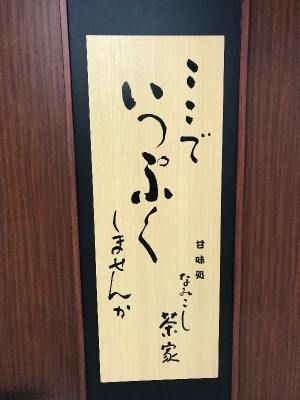 ここで
いっぷく
しませんか
甘味処
なみこし
茶家